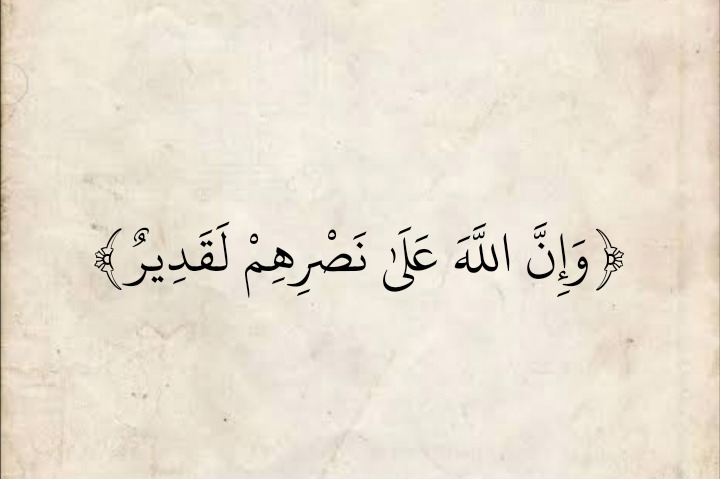 ﴿وَإِنَّ اللَّهَ عَلَىٰ نَصْرِهِمْ لَقَدِيرٌ﴾